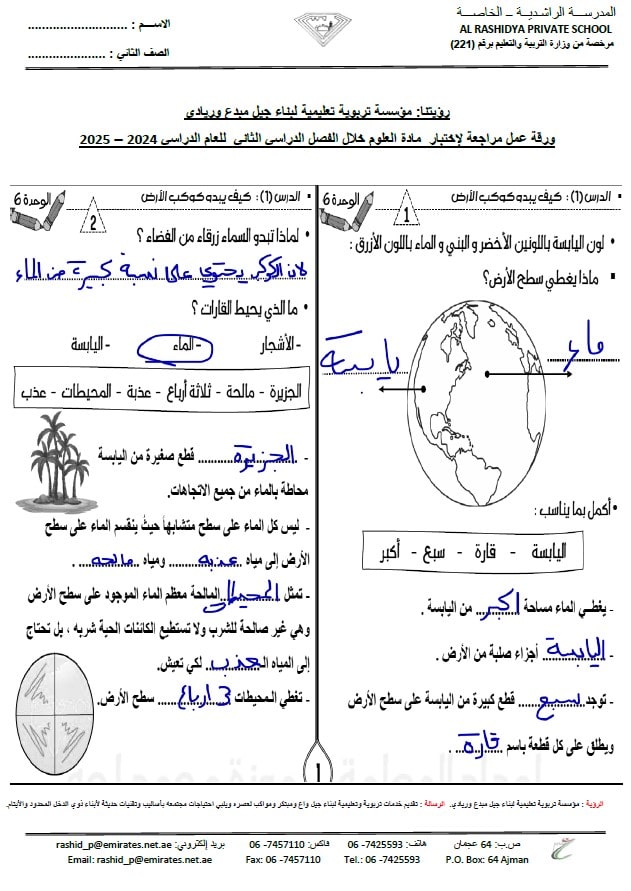 المدرســة الراشديــة – الخاصــة
AL RASHIDYA PRIVATE SCHOOL
مرخصة من وزارة التربية والتعليم برقم (221)
الاســم : ............................
الصف الثاني : ......................
رؤيتنا: مؤسسة تربوية تعليمية لبناء جيل مبدع وريادي
ورقة عمل مراجعة لإختبار مادة العلوم خلال الفصل الدراسي الثاني للعام الدراسي 2024 – 2025
الدرس (1) : كيف يبدو كوكب الأرض
1
الوحدة 6
• لون اليابسة باللونين الأخضر و البني و الماء باللون الأزرق :
• ماذا يغطي سطح الأرض؟
ماء
يابسة
• أكمل بما يناسب :
اليابسة - قارة - سبع - أكبر
- يغطي الماء مساحة اكبر من اليابسة .
- اليابسة أجزاء صلبة من الأرض .
- توجد سبع قطع كبيرة من اليابسة على سطح الأرض
ويطلق على كل قطعة باسم قارة .
• الدرس (1) : كيف يبدو كوكب الأرض
2
الوحدة 6
• لماذا تبدو السماء زرقاء من الفضاء ؟
لان الكوكب يحتوي على نسبة كبيرة من الماء
• ما الذي يحيط القارات ؟
- الأشجار - الماء - اليابسة
الجزيرة - مالحة - ثلاثة أرباع - عذبة - المحيطات - عذب
- الجزيرة قطع صغيرة من اليابسة
محاطة بالماء من جميع الاتجاهات.
- ليس كل الماء على سطح متشابهاً حيث ينقسم الماء على سطح
الأرض إلى مياه عذبه ومياه مالحه .
- تمثل المالحة معظم الماء الموجود على سطح الأرض
وهي غير صالحة للشرب ولا تستطيع الكائنات الحية شربه ، بل تحتاج
إلى المياه العذب لكي تعيش.
- تغطي المحيطات 3 ارباع سطح الأرض.
1
الرؤية : مؤسسة تربوية تعليمية لبناء جيل مبدع وريادي. الرسالة : تقديم خدمات تربوية وتعليمية لبناء جيل واع ومبتكر ومواكب لعصره ويلبي احتياجات مجتمعه بأساليب وتقنيات حديثة لأبناء ذوي الدخل المحدود والأيتام.
ص.ب: 64 عجمان هاتف: 7425593- 06 فاكس: 7457110- 06 بريد إلكتروني: rashid_p@emirates.net.ae
P.O. Box: 64 Ajman Tel.: 06 -7425593 Fax: 06 -7457110 Email: rashid_p@emirates.net.ae